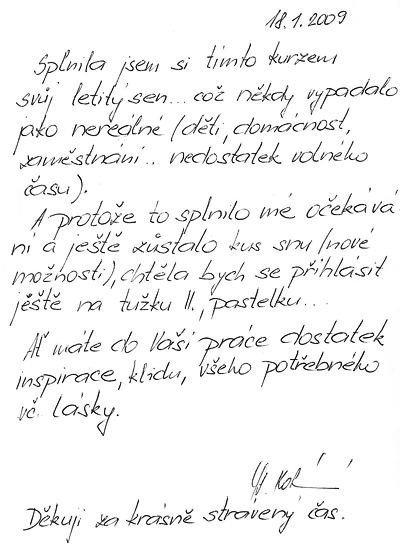 18.1.2009
Splnila jsem si tímto kurzem
svůj letitý sen... což někdy vypadalo
jako nereálné (děti, domácnost,
zaměstnání.. nedostatek volného
času).
A protože to splnilo mé očekává
ní a ještě zůstalo kus snu (nové
možnosti), chtěla bych se přihlásit
ještě na tužku II., pastelku...
Ať máte do Vaší práce dostatek
inspirace, klidu, všeho potřebného
vč. lásky.
Děkuji za krásně strávený čas.